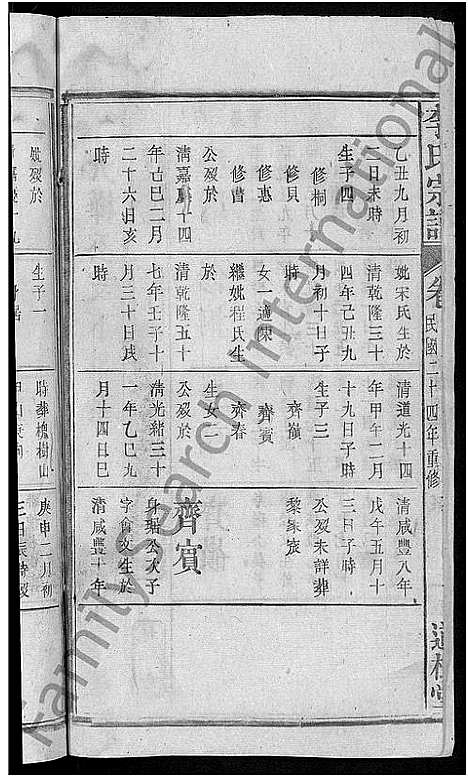 李氏宗譜
卷
民國二十四年重修
乙丑九月初
二日未時
生子四
修桐
修貝
修惠
修曹
公歿於
清嘉慶十四
年己巳二月
二十六日亥
時
妣宋氏生於
清乾隆三十
四年己丑九
月初十日子
時
女一適陳
繼妣程氏生
於
清乾隆五十
七年壬子十
月三十日戌
時
清道光十四
年甲午二月
十九日子時
生子三
齊嶺
齊賓
齊春
生女二
公歿於
清光緒三十
一年乙巳九
月十四日巳
清咸豐八年
戊午五月十
三日子時
公歿未詳葬
黎家宸
齊賓
身瑞公次子
字自文生於
清咸豐十年
妣歿於
生子一
時葬槐樹山
庚申二月初
FamilySearch International